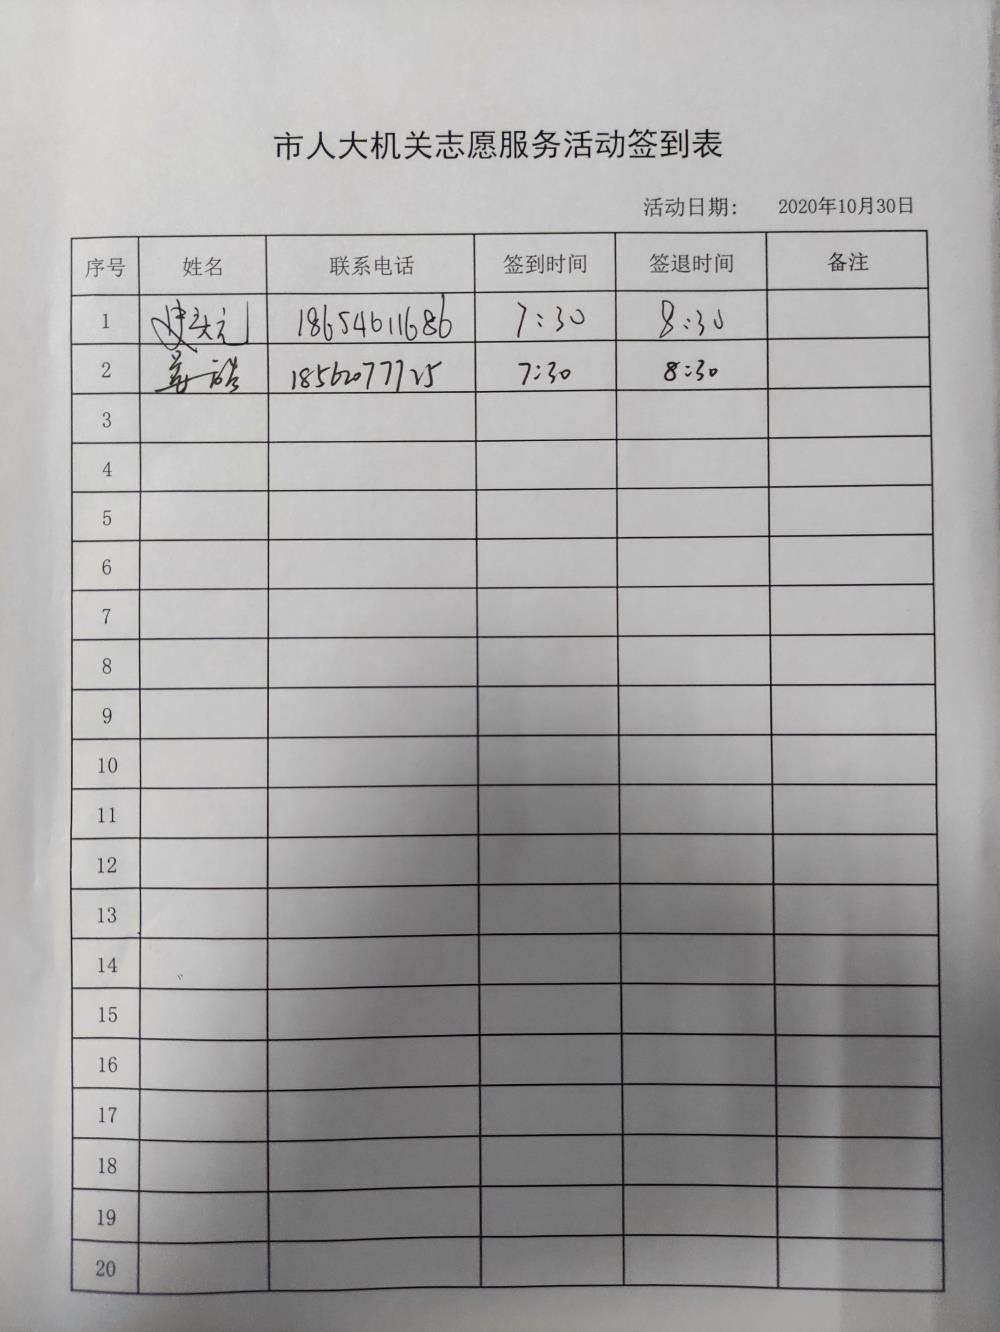 市人大机关志愿服务活动签到表
活动日期: 2020年10月30日
序号 姓名 联系电话 签到时间 签退时间 备注
1 18654611686 7:30 8:30
2 18562077725 7:30 8:30
3
4
5
6
7
8
9
10
11
12
13
14
15
16
17
18
19
20